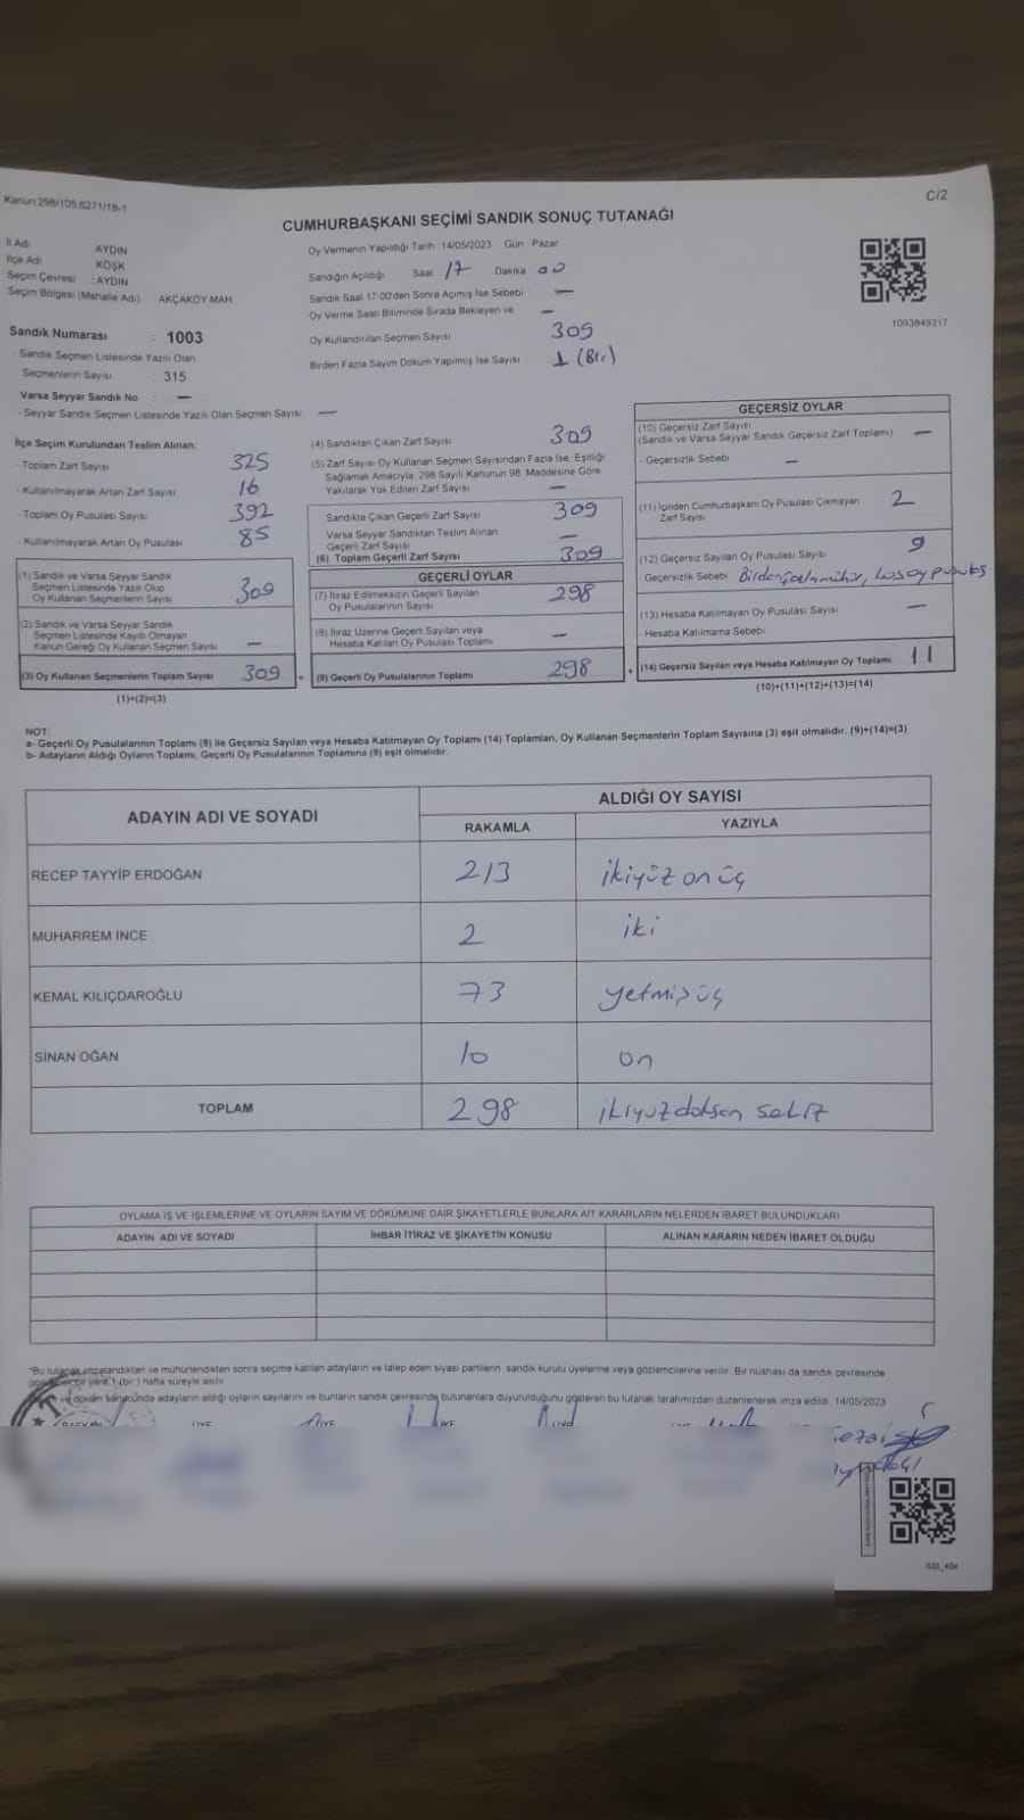 Kanun:298/105,6271/18-1
C/2
CUMHURBAŞKANI SEÇİMİ SANDIK SONUÇ TUTANAĞI
İl Adı : AYDIN
İlçe Adı : KÖŞK
Seçim Çevresi : AYDIN
Seçim Bölgesi (Mahalle Adı) : AKÇAKÖY MAH.
Oy Vermenin Yapıldığı Tarih :14/05/2023 Gün : Pazar
Sandığın Açıldığı Saat 17 Dakika 00
Sandık Saat 17:00'den Sonra Açılmış İse Sebebi —
Oy Verme Saati Bitiminde Sırada Bekleyen ve —
Oy Kullandırılan Seçmen Sayısı 309
Birden Fazla Sayım Döküm Yapılmış İse Sayısı 1 (Bir)
1093849217
Sandık Numarası : 1003
- Sandık Seçmen Listesinde Yazılı Olan
Seçmenlerin Sayısı : 315
Varsa Seyyar Sandık No : —
- Seyyar Sandık Seçmen Listesinde Yazılı Olan Seçmen Sayısı : —
İlçe Seçim Kurulundan Teslim Alınan:
- Toplam Zarf Sayısı 325
- Kullanılmayarak Artan Zarf Sayısı 16
- Toplam Oy Pusulası Sayısı 392
- Kullanılmayarak Artan Oy Pusulası 85
(1) Sandık ve Varsa Seyyar Sandık
Seçmen Listesinde Yazılı Olup
Oy Kullanan Seçmenlerin Sayısı 309
(2) Sandık ve Varsa Seyyar Sandık
Seçmen Listesinde Kayıtlı Olmayan
Kanun Gereği Oy Kullanan Seçmen Sayısı —
(3) Oy Kullanan Seçmenlerin Toplam Sayısı 309
(1)+(2)=(3)
(4) Sandıktan Çıkan Zarf Sayısı 309
(5) Zarf Sayısı Oy Kullanan Seçmen Sayısından Fazla İse, Eşitliği
Sağlamak Amacıyla, 298 Sayılı Kanunun 98. Maddesine Göre
Yakılarak Yok Edilen Zarf Sayısı —
Sandıkta Çıkan Geçerli Zarf Sayısı 309
Varsa Seyyar Sandıktan Teslim Alınan
Geçerli Zarf Sayısı —
(6) Toplam Geçerli Zarf Sayısı 309
GEÇERLİ OYLAR
(7) İtiraz Edilmeksizin Geçerli Sayılan
Oy Pusulalarının Sayısı 298
(8) İtiraz Üzerine Geçerli Sayılan veya
Hesaba Katılan Oy Pusulası Toplamı —
(9) Geçerli Oy Pusulalarının Toplamı 298
GEÇERSİZ OYLAR
(10) Geçersiz Zarf Sayısı
(Sandık ve Varsa Seyyar Sandık Geçersiz Zarf Toplamı) —
- Geçersizlik Sebebi —
(11) İçinden Cumhurbaşkanı Oy Pusulası Çıkmayan
Zarf Sayısı 2
(12) Geçersiz Sayılan Oy Pusulası Sayısı 9
Geçersizlik Sebebi Birden fazla mühür,
(13) Hesaba Katılmayan Oy Pusulası Sayısı —
- Hesaba Katılmama Sebebi
(14) Geçersiz Sayılan veya Hesaba Katılmayan Oy Toplamı 11
(10)+(11)+(12)+(13)=(14)
NOT:
a- Geçerli Oy Pusulalarının Toplamı (9) ile Geçersiz Sayılan veya Hesaba Katılmayan Oy Toplamı (14) Toplamları, Oy Kullanan Seçmenlerin Toplam Sayısına (3) eşit olmalıdır. (9)+(14)=(3)
b- Adayların Aldığı Oyların Toplamı, Geçerli Oy Pusulalarının Toplamına (9) eşit olmalıdır.
ADAYIN ADI VE SOYADI
ALDIĞI OY SAYISI
RAKAMLA YAZIYLA
RECEP TAYYİP ERDOĞAN 213 ikiyüz onüç
MUHARREM İNCE 2 iki
KEMAL KILIÇDAROĞLU 73 yetmişüç
SİNAN OĞAN 10 on
TOPLAM 298 ikiyüzdoksan sekiz
OYLAMA İŞ VE İŞLEMLERİNE VE OYLARIN SAYIM VE DÖKÜMÜNE DAİR ŞİKAYETLERLE BUNLARA AİT KARARLARIN NELERDEN İBARET BULUNDUKLARI
ADAYIN ADI VE SOYADI İHBAR İTİRAZ VE ŞİKAYETİN KONUSU ALINAN KARARIN NEDEN İBARET OLDUĞU
*Bu tutanak imzalandıktan ve mühürlendikten sonra seçime katılan adayların ve talep eden siyasi partilerin, sandık kurulu üyelerine veya gözlemcilerine verilir. Bir nüshası da sandık çevresinde
bir yere 1 (bir) hafta süreyle asılır.
ve döküm sonucunda adayların aldığı oyların sayılarını ve bunların sandık çevresinde bulunanlara duyurulduğunu gösteren bu tutanak tarafımızdan düzenlenerek imza edildi. 14/05/2023
BAŞKAN ÜYE ÜYE ÜYE